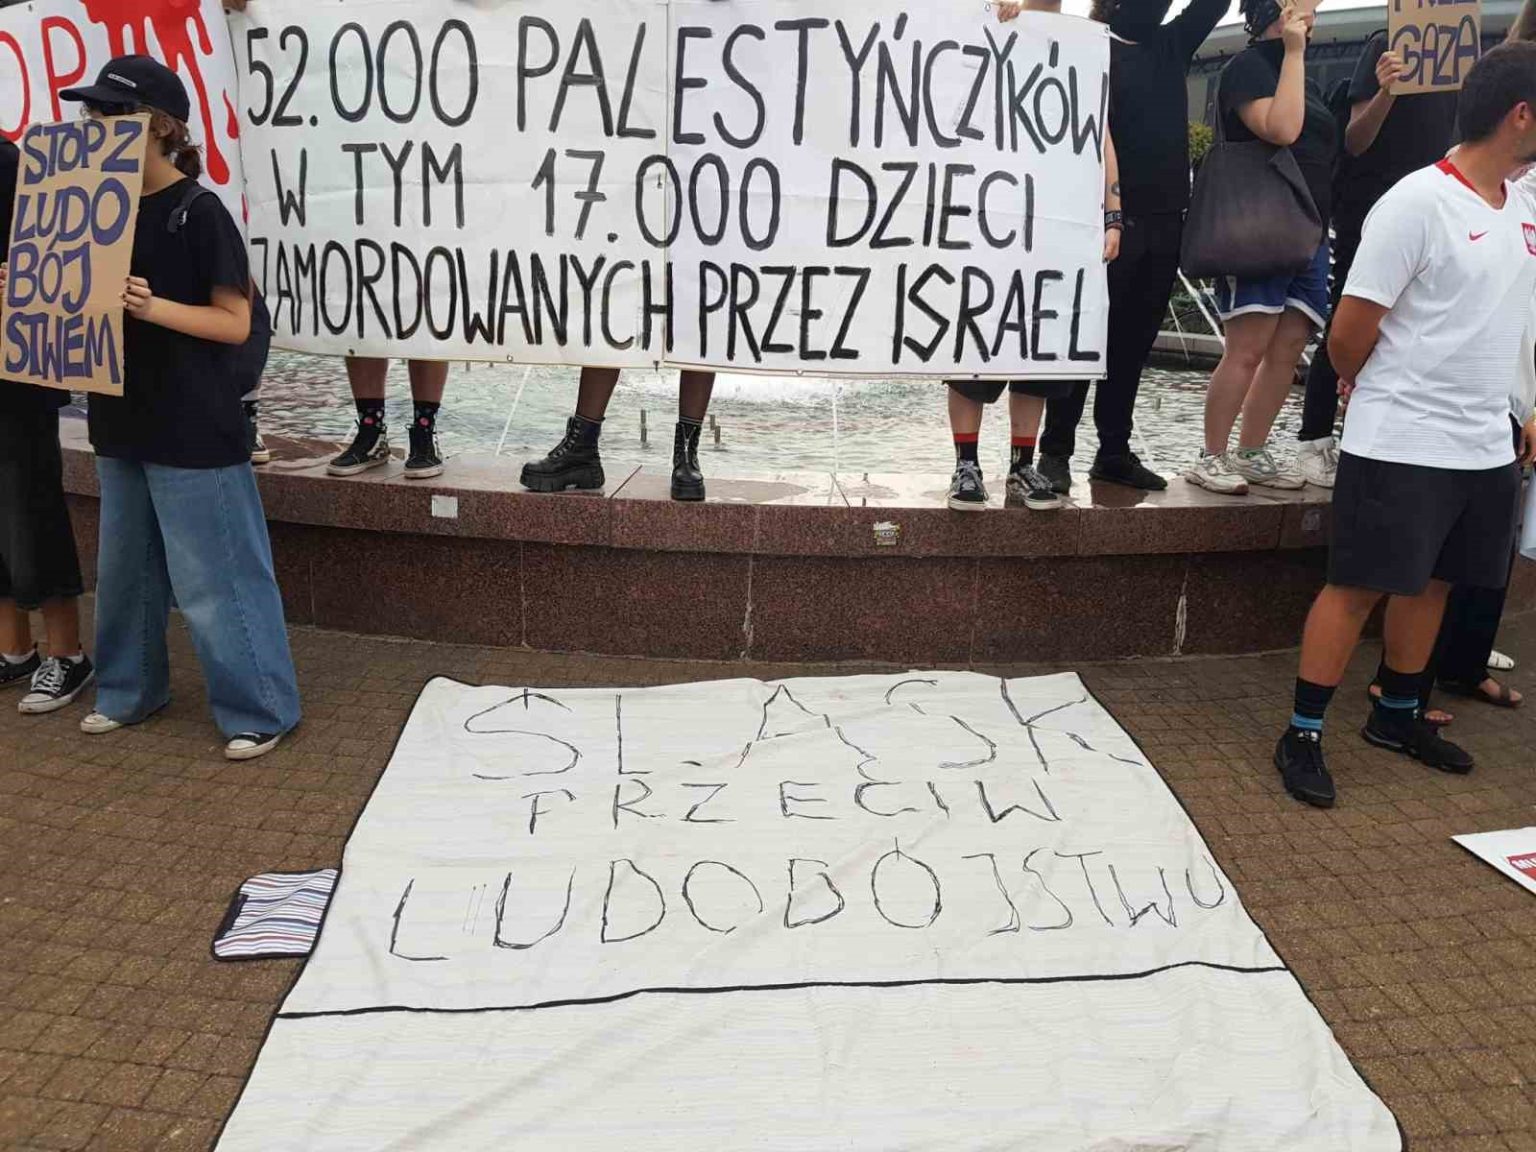 OP
STOP Z
LUDO
BÓJ
STWEM
52.000 PALESTYŃCZYKÓW
W TYM 17.000 DZIECI
ZAMORDOWANYCH PRZEZ ISRAEL
GAZA
ŚLĄSK
PRZECIW
LUDOBÓJSTWU